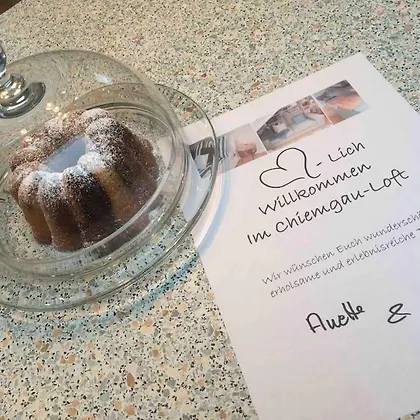 -Lich
Willkommen
Im Chiemgau-Loft
Wir wünschen Euch wundersch
erholsame und erlebnisreiche T
Anette &